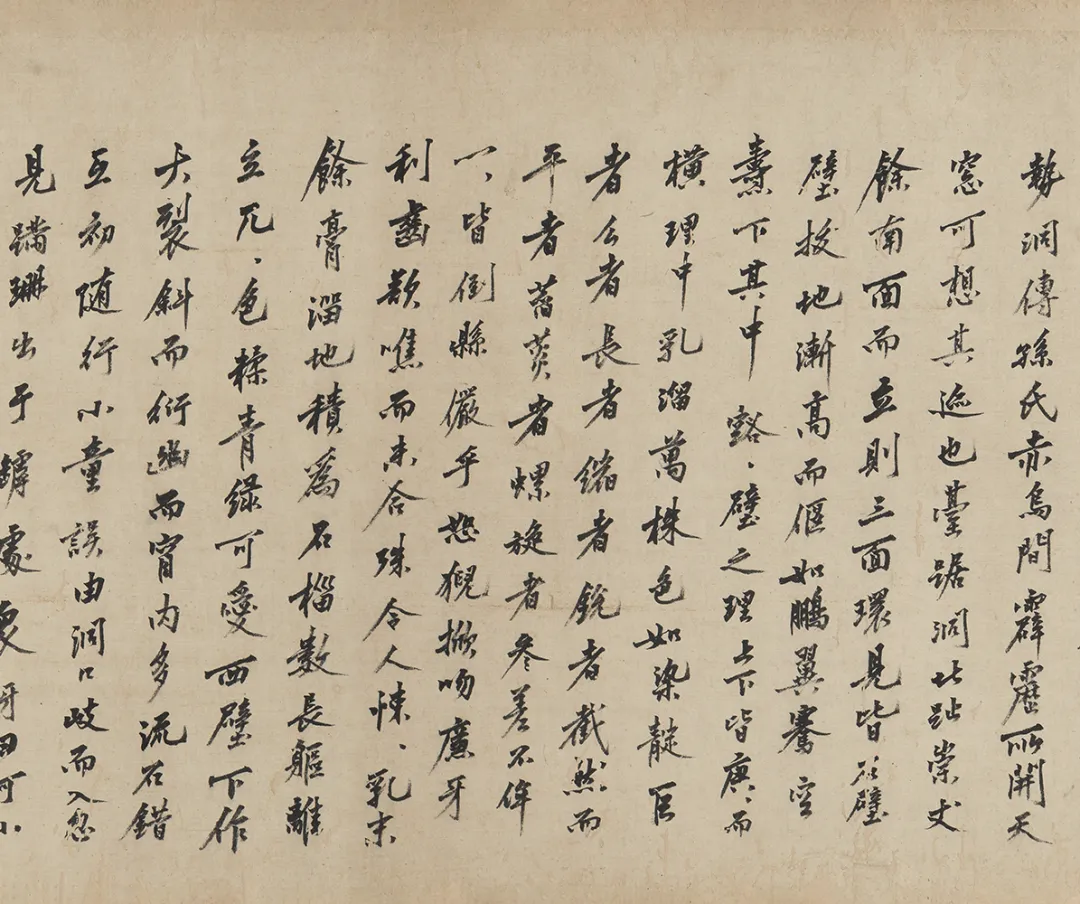 勢洞傳孫氏赤烏間霹靂所開天
窓可想其迹也臺踞洞北趾崇丈
餘南面而立則三面環見皆石壁
壁拔地漸高而傴如鵬翼騫空
燾下其中谽谽壁之理上下皆庚庚而
橫理中乳溜萬株色如染靛巨
者么者長者縮者銳者截然而
平者菡萏者螺旋者參差不侔
一一皆倒縣儼乎怒猊掀吻廉牙
利齒欲噍而未合殊令人悚悚乳末
餘膏溜地積為石檣數長軀離
立兀兀色糅青綠可愛西壁下作
大裂斜而衍幽而窅內多流石錯
互初隨行小童誤由洞口歧而入忽
見蹣跚出于罅處